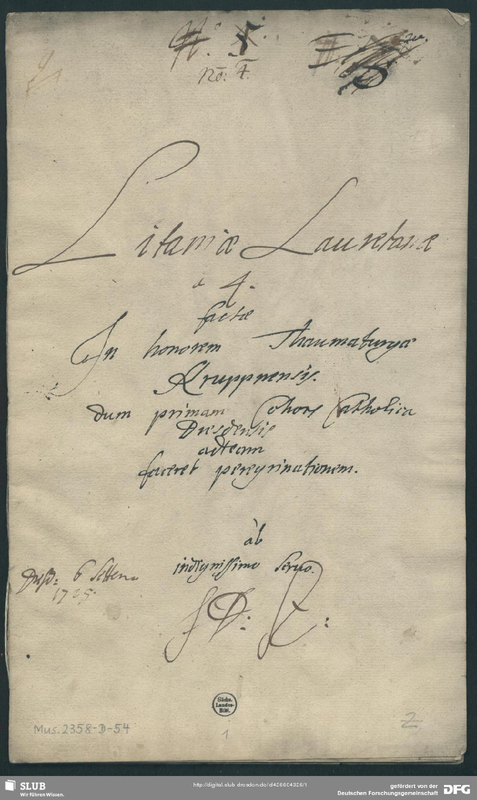 No: 4.
Litaniæ Lauretanæ
à 4.
factæ
In honorem Thaumaturgæ
Kruppnensis.
dum primam Cohors Catholica
Dresdensis
ad eam
faceret peregrinationem.
ab
indignissimo Servo.
JDZ:
Dresd: 6 Settem
1725.
Sächs.
Landes-
Bibl.
Mus. 2358-D-54
1
2
SLUB
Wir führen Wissen.
http://digital.slub-dresden.de/id426604326/1
gefördert von der
Deutschen Forschungsgemeinschaft
DFG